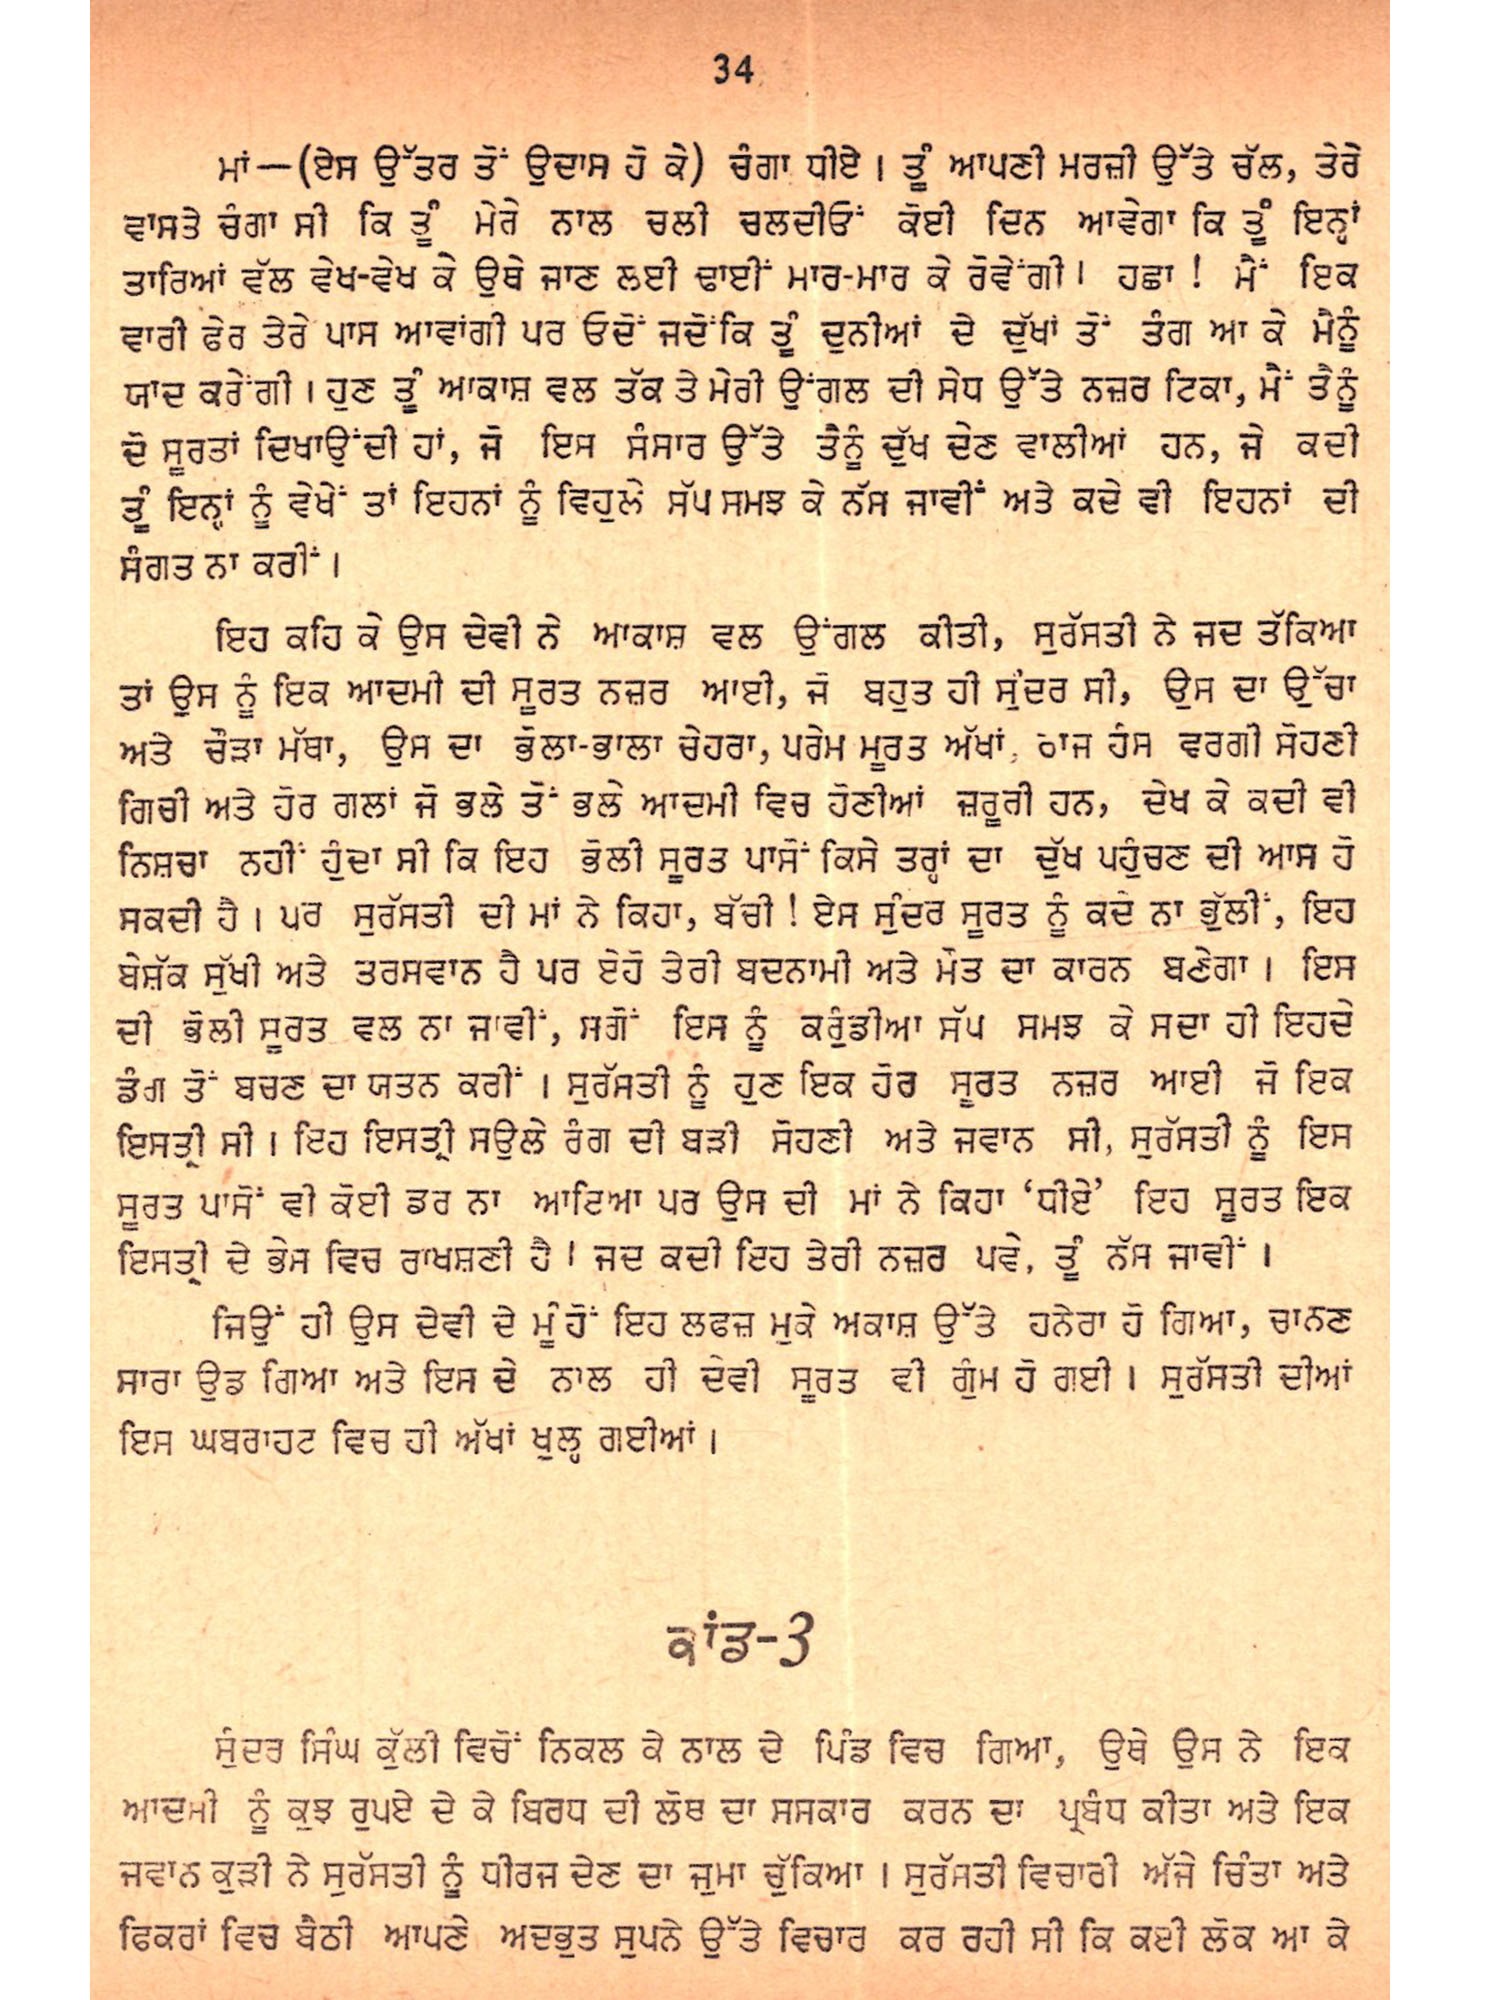 34
ਮਾਂ—(ਏਸ ਉੱਤਰ ਤੋਂ ਉਦਾਸ ਹੋ ਕੇ) ਚੰਗਾ ਧੀਏ । ਤੂੰ ਆਪਣੀ ਮਰਜ਼ੀ ਉੱਤੇ ਚੱਲ, ਤੇਰੇ
ਵਾਸਤੇ ਚੰਗਾ ਸੀ ਕਿ ਤੂੰ ਮੇਰੇ ਨਾਲ ਚਲੀ ਚਲਦੀਓਂ ਕੋਈ ਦਿਨ ਆਵੇਗਾ ਕਿ ਤੂੰ ਇਨ੍ਹਾਂ
ਤਾਰਿਆਂ ਵੱਲ ਵੇਖ-ਵੇਖ ਕੇ ਉਥੇ ਜਾਣ ਲਈ ਢਾਈਂ ਮਾਰ-ਮਾਰ ਕੇ ਰੋਵੇਂਗੀ । ਹਛਾ ! ਮੈਂ ਇਕ
ਵਾਰੀ ਫੇਰ ਤੇਰੇ ਪਾਸ ਆਵਾਂਗੀ ਪਰ ਓਦੋਂ ਜਦੋਂਕਿ ਤੂੰ ਦੁਨੀਆਂ ਦੇ ਦੁੱਖਾਂ ਤੋਂ ਤੰਗ ਆ ਕੇ ਮੈਨੂੰ
ਯਾਦ ਕਰੇਂਗੀ । ਹੁਣ ਤੂੰ ਆਕਾਸ਼ ਵਲ ਤੱਕ ਤੇ ਮੇਰੀ ਉਂਗਲ ਦੀ ਸੇਧ ਉੱਤੇ ਨਜ਼ਰ ਟਿਕਾ, ਮੈਂ ਤੈਨੂੰ
ਦੋ ਸੂਰਤਾਂ ਦਿਖਾਉਂਦੀ ਹਾਂ, ਜੋ ਇਸ ਸੰਸਾਰ ਉੱਤੇ ਤੈਨੂੰ ਦੁੱਖ ਦੇਣ ਵਾਲੀਆਂ ਹਨ, ਜੇ ਕਦੀ
ਤੂੰ ਇਨ੍ਹਾਂ ਨੂੰ ਵੇਖੇਂ ਤਾਂ ਇਹਨਾਂ ਨੂੰ ਵਿਹੁਲੇ ਸੱਪ ਸਮਝ ਕੇ ਨੱਸ ਜਾਵੀਂ ਅਤੇ ਕਦੇ ਵੀ ਇਹਨਾਂ ਦੀ
ਸੰਗਤ ਨਾ ਕਰੀਂ ।
ਇਹ ਕਹਿ ਕੇ ਉਸ ਦੇਵੀ ਨੇ ਆਕਾਸ਼ ਵਲ ਉਂਗਲ ਕੀਤੀ, ਸੁਰੱਸਤੀ ਨੇ ਜਦ ਤੱਕਿਆ
ਤਾਂ ਉਸ ਨੂੰ ਇਕ ਆਦਮੀ ਦੀ ਸੂਰਤ ਨਜ਼ਰ ਆਈ, ਜੋ ਬਹੁਤ ਹੀ ਸੁੰਦਰ ਸੀ, ਉਸ ਦਾ ਉੱਚਾ
ਅਤੇ ਚੌੜਾ ਮੱਥਾ, ਉਸ ਦਾ ਭੋਲਾ-ਭਾਲਾ ਚੇਹਰਾ, ਪਰੇਮ ਮੂਰਤ ਅੱਖਾਂ, ਰਾਜ ਹੰਸ ਵਰਗੀ ਸੋਹਣੀ
ਗਿਚੀ ਅਤੇ ਹੋਰ ਗਲਾਂ ਜੋ ਭਲੇ ਤੋਂ ਭਲੇ ਆਦਮੀ ਵਿਚ ਹੋਣੀਆਂ ਜ਼ਰੂਰੀ ਹਨ, ਦੇਖ ਕੇ ਕਦੀ ਵੀ
ਨਿਸ਼ਚਾ ਨਹੀਂ ਹੁੰਦਾ ਸੀ ਕਿ ਇਹ ਭੋਲੀ ਸੂਰਤ ਪਾਸੋਂ ਕਿਸੇ ਤਰ੍ਹਾਂ ਦਾ ਦੁੱਖ ਪਹੁੰਚਣ ਦੀ ਆਸ ਹੋ
ਸਕਦੀ ਹੈ । ਪਰ ਸੁਰੱਸਤੀ ਦੀ ਮਾਂ ਨੇ ਕਿਹਾ, ਬੱਚੀ ! ਏਸ ਸੁੰਦਰ ਸੂਰਤ ਨੂੰ ਕਦੇ ਨਾ ਭੁੱਲੀਂ, ਇਹ
ਬੇਸ਼ੱਕ ਸੁੱਖੀ ਅਤੇ ਤਰਸਵਾਨ ਹੈ ਪਰ ਏਹੋ ਤੇਰੀ ਬਦਨਾਮੀ ਅਤੇ ਮੌਤ ਦਾ ਕਾਰਨ ਬਣੇਗਾ । ਇਸ
ਦੀ ਭੋਲੀ ਸੂਰਤ ਵਲ ਨਾ ਜਾਵੀਂ, ਸਗੋਂ ਇਸ ਨੂੰ ਕਰੁੰਡੀਆ ਸੱਪ ਸਮਝ ਕੇ ਸਦਾ ਹੀ ਇਹਦੇ
ਡੰਗ ਤੋਂ ਬਚਣ ਦਾ ਯਤਨ ਕਰੀਂ । ਸੁਰੱਸਤੀ ਨੂੰ ਹੁਣ ਇਕ ਹੋਰ ਸੂਰਤ ਨਜ਼ਰ ਆਈ ਜੋ ਇਕ
ਇਸਤ੍ਰੀ ਸੀ । ਇਹ ਇਸਤ੍ਰੀ ਸਉਲੇ ਰੰਗ ਦੀ ਬੜੀ ਸੋਹਣੀ ਅਤੇ ਜਵਾਨ ਸੀ, ਸੁਰੱਸਤੀ ਨੂੰ ਇਸ
ਸੂਰਤ ਪਾਸੋਂ ਵੀ ਕੋਈ ਡਰ ਨਾ ਆਇਆ ਪਰ ਉਸ ਦੀ ਮਾਂ ਨੇ ਕਿਹਾ ‘ਧੀਏ’ ਇਹ ਸੂਰਤ ਇਕ
ਇਸਤ੍ਰੀ ਦੇ ਭੇਸ ਵਿਚ ਰਾਖਸ਼ਣੀ ਹੈ । ਜਦ ਕਦੀ ਇਹ ਤੇਰੀ ਨਜ਼ਰ ਪਵੇ, ਤੂੰ ਨੱਸ ਜਾਵੀਂ ।
ਜਿਉਂ ਹੀ ਉਸ ਦੇਵੀ ਦੇ ਮੂੰਹੋਂ ਇਹ ਲਫਜ਼ ਮੁਕੇ ਅਕਾਸ਼ ਉੱਤੇ ਹਨੇਰਾ ਹੋ ਗਿਆ, ਚਾਨਣ
ਸਾਰਾ ਉਡ ਗਿਆ ਅਤੇ ਇਸ ਦੇ ਨਾਲ ਹੀ ਦੇਵੀ ਸੂਰਤ ਵੀ ਗੁੰਮ ਹੋ ਗਈ । ਸੁਰੱਸਤੀ ਦੀਆਂ
ਇਸ ਘਬਰਾਹਟ ਵਿਚ ਹੀ ਅੱਖਾਂ ਖੁਲ੍ਹ ਗਈਆਂ ।
ਕਾਂਡ-3
ਸੁੰਦਰ ਸਿੰਘ ਕੁੱਲੀ ਵਿਚੋਂ ਨਿਕਲ ਕੇ ਨਾਲ ਦੇ ਪਿੰਡ ਵਿਚ ਗਿਆ, ਉਥੇ ਉਸ ਨੇ ਇਕ
ਆਦਮੀ ਨੂੰ ਕੁਝ ਰੁਪਏ ਦੇ ਕੇ ਬਿਰਧ ਦੀ ਲੋਥ ਦਾ ਸਸਕਾਰ ਕਰਨ ਦਾ ਪ੍ਰਬੰਧ ਕੀਤਾ ਅਤੇ ਇਕ
ਜਵਾਨ ਕੁੜੀ ਨੇ ਸੁਰੱਸਤੀ ਨੂੰ ਧੀਰਜ ਦੇਣ ਦਾ ਜੁਮਾ ਚੁੱਕਿਆ । ਸੁਰੱਸਤੀ ਵਿਚਾਰੀ ਅੱਜੇ ਚਿੰਤਾ ਅਤੇ
ਫਿਕਰਾਂ ਵਿਚ ਬੈਠੀ ਆਪਣੇ ਅਦਭੁਤ ਸੁਪਨੇ ਉੱਤੇ ਵਿਚਾਰ ਕਰ ਰਹੀ ਸੀ ਕਿ ਕਈ ਲੋਕ ਆ ਕੇ